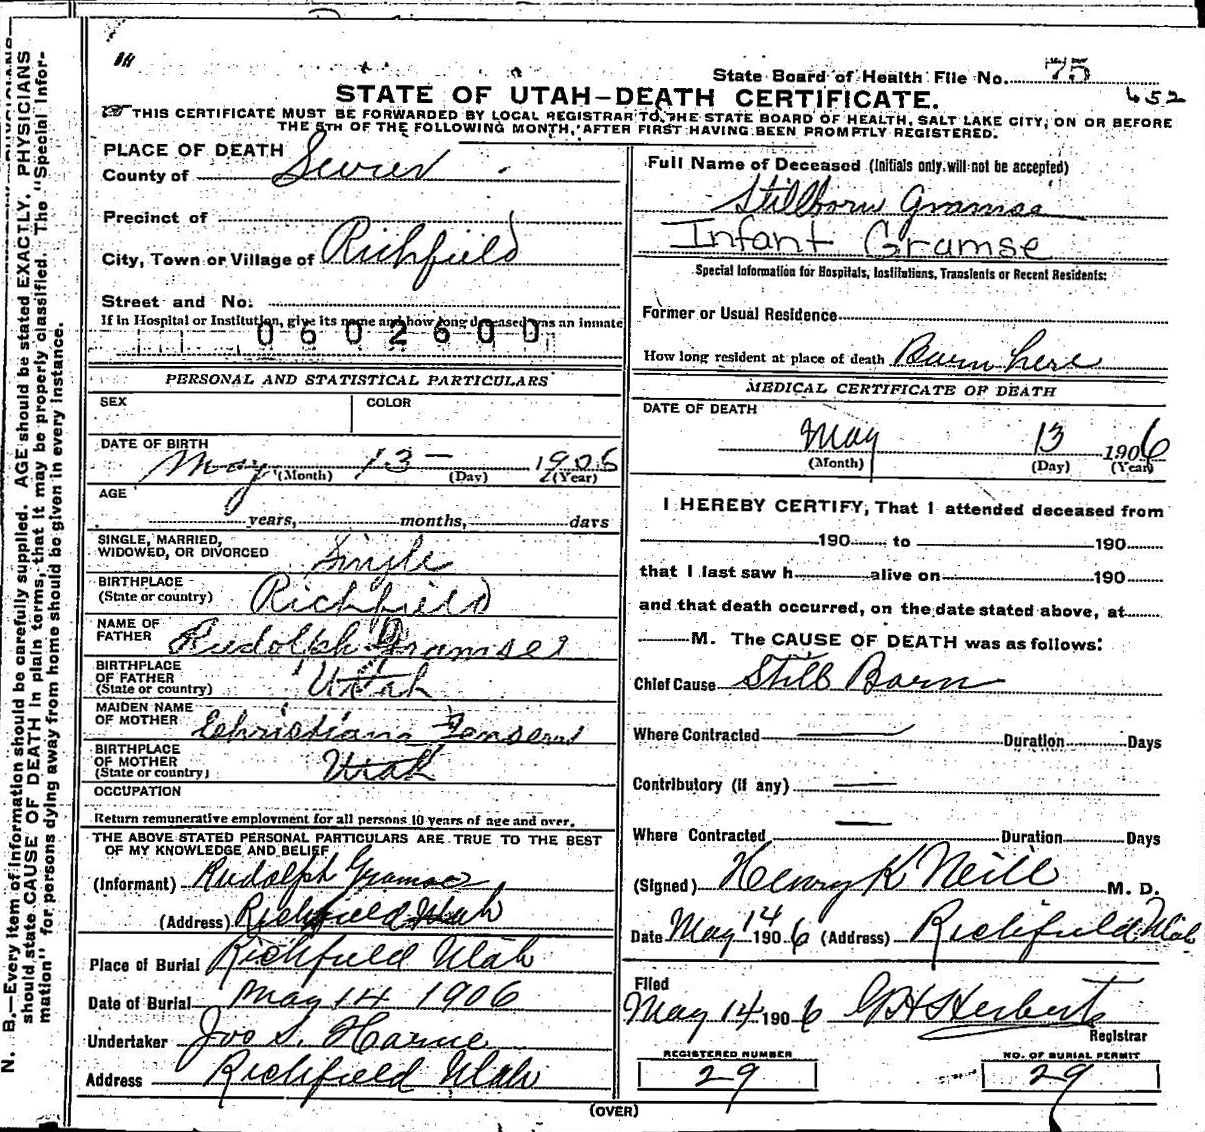 State Board of Health File No. 75
452
STATE OF UTAH—DEATH CERTIFICATE.
THIS CERTIFICATE MUST BE FORWARDED BY LOCAL REGISTRAR TO THE STATE BOARD OF HEALTH, SALT LAKE CITY, ON OR BEFORE
THE 5TH OF THE FOLLOWING MONTH, AFTER FIRST HAVING BEEN PROMPTLY REGISTERED.
PLACE OF DEATH
County of Sevier
Precinct of
City, Town or Village of Richfield
Street and No.
If in Hospital or Institution, give its name and how long deceased was an inmate
0602600
PERSONAL AND STATISTICAL PARTICULARS
SEX
COLOR
DATE OF BIRTH
May 13 — 1906
(Month) (Day) (Year)
AGE
years, months, days
SINGLE, MARRIED,
WIDOWED, OR DIVORCED Single
BIRTHPLACE
(State or country) Richfield
NAME OF
FATHER Rudolph Gramse
BIRTHPLACE
OF FATHER
(State or country) Utah
MAIDEN NAME
OF MOTHER
BIRTHPLACE
OF MOTHER
(State or country) Utah
OCCUPATION
Return remunerative employment for all persons 10 years of age and over.
THE ABOVE STATED PERSONAL PARTICULARS ARE TRUE TO THE BEST
OF MY KNOWLEDGE AND BELIEF
(Informant) Rudolph Gramse
(Address) Richfield Utah
Place of Burial Richfield Utah
Date of Burial May 14 1906
Undertaker Jos S. Horne
Address Richfield Utah
Full Name of Deceased (Initials only will not be accepted)
Stillborn Gramse
Infant Gramse
Special Information for Hospitals, Institutions, Transients or Recent Residents:
Former or Usual Residence
How long resident at place of death Born here
MEDICAL CERTIFICATE OF DEATH
DATE OF DEATH
May 13 1906
(Month) (Day) (Year)
I HEREBY CERTIFY, That I attended deceased from
190 to 190
that I last saw h alive on 190
and that death occurred, on the date stated above, at
M. The CAUSE OF DEATH was as follows:
Chief Cause Still Born
Where Contracted Duration Days
Contributory (if any)
Where Contracted Duration Days
(Signed) Henry K Neill M. D.
Date May 14 1906 (Address) Richfield Utah
Filed
May 14 1906 G H Herbert
Registrar
REGISTERED NUMBER
29
NO. OF BURIAL PERMIT
29
(OVER)
N. B.—Every item of information should be carefully supplied. AGE should be stated EXACTLY. PHYSICIANS
should state CAUSE OF DEATH in plain terms, that it may be properly classified. The "Special Infor-
mation" for persons dying away from home should be given in every instance.